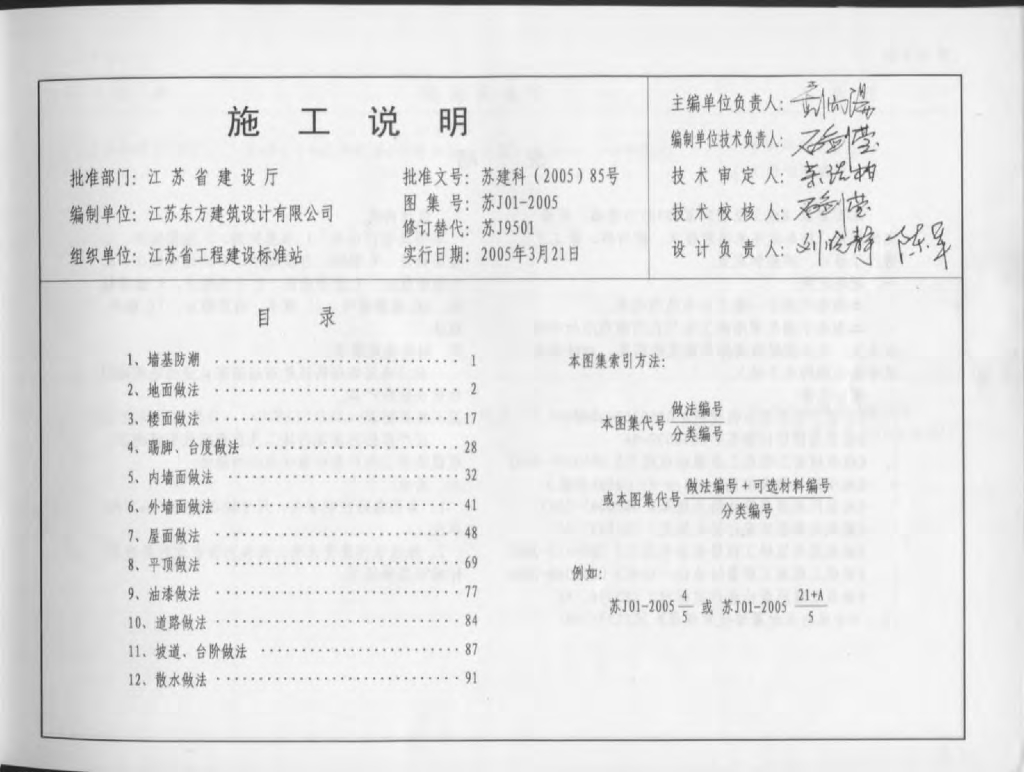 施工说明
批准部门：江苏省建设厅
编制单位：江苏东方建筑设计有限公司
组织单位：江苏省工程建设标准站
批准文号：苏建科(2005)85号
图集号：苏J01-2005
修订替代：苏J9501
实行日期：2005年3月21日
主编单位负责人：
编制单位技术负责人：
技术审定人：
技术校核人：
设计负责人：
目录
1、墙基防潮 1
2、地面做法 2
3、楼面做法 17
4、踢脚、台度做法 28
5、内墙面做法 32
6、外墙面做法 41
7、屋面做法 48
8、平顶做法 69
9、油漆做法 77
10、道路做法 84
11、坡道、台阶做法 87
12、散水做法 91
本图集索引方法：
做法编号
本图集代号
分类编号
做法编号+可选材料编号
或本图集代号
分类编号
例如：
苏J01-2005 4/5 或 苏J01-2005 21+A/5